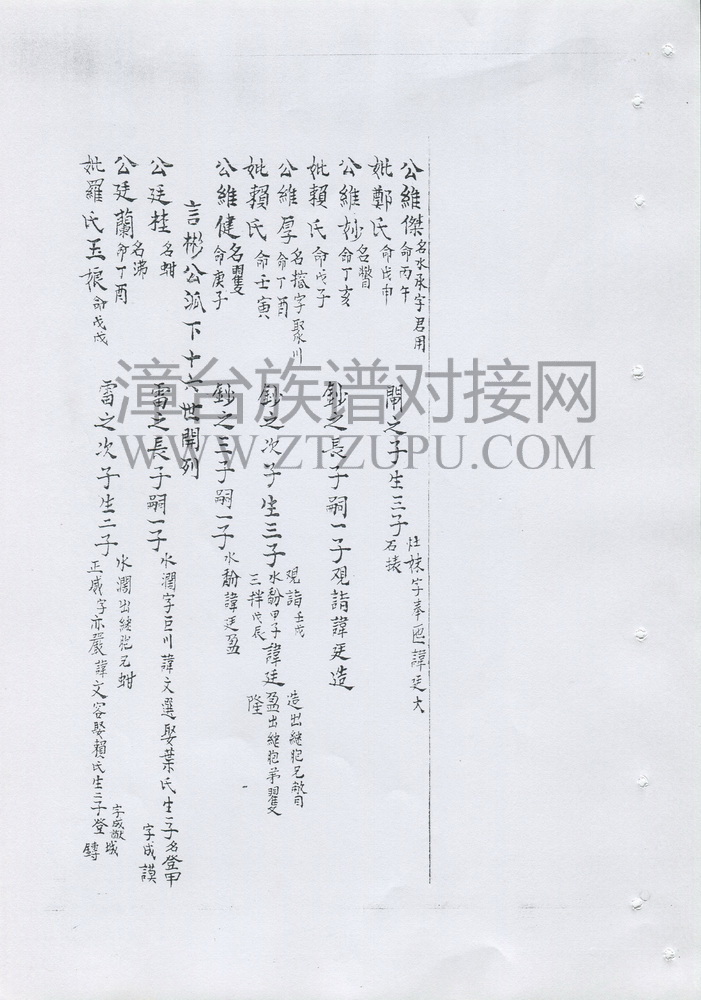 公維傑 名水承字君用 命丙午 閘之子生三子 灶妹字奉 諱廷大 石接
妣鄭氏 命戊申
公維妙 名瞥 命丁亥 鈔之長子嗣一子 覌詣諱廷造
妣賴氏 命戊子
公維厚 名捻字聚川 命丁酉 鈔之次子生三子 覌詣 壬戌 水翻 甲子 三拌 戊辰 諱廷 造出継胞兄敏目 盈出継胞弟矍 隆
妣賴氏 命壬寅
公維健 名矍 命庚子 鈔之三子嗣一子 水翻諱廷盈
言彬公派下十六世開列
公廷桂 名蚶 雷之長子嗣一子 水濶字巨川諱文選娶葉氏生二子名登甲 字成謨
公廷蘭 名沸 命丁酉 雷之次子生二子 水濶出継胞兄蚶 正威字亦嚴諱文容娶賴氏生三子登
妣羅氏玉娘 命戊戌
漳台族谱对接网
WWW.ZTZUPU.COM